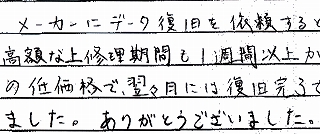 メーカーにデータ復旧を依頼すると
高額な上修理期間も1週間以上か
の低価格で、翌々日には復旧完了で
ました。ありがとうございました。